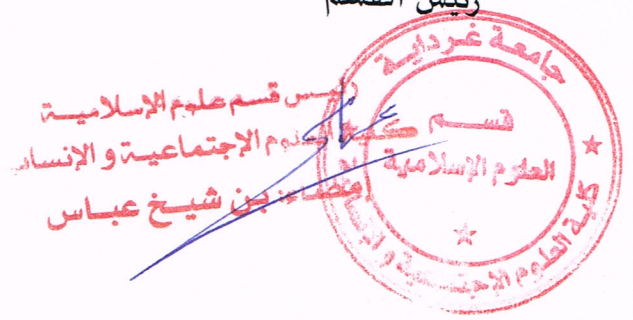 رئيس القسم
رئيس قسم علوم الإسلاميـة
كلية العلوم الإجتماعيـة و الإنسانـ
إمضاء: بن شيـخ عبـاس
جامعـة غـردايـة
قســم
العلوم الإسلامية
كلية العلوم الإجتمـاعية و الإنسـ